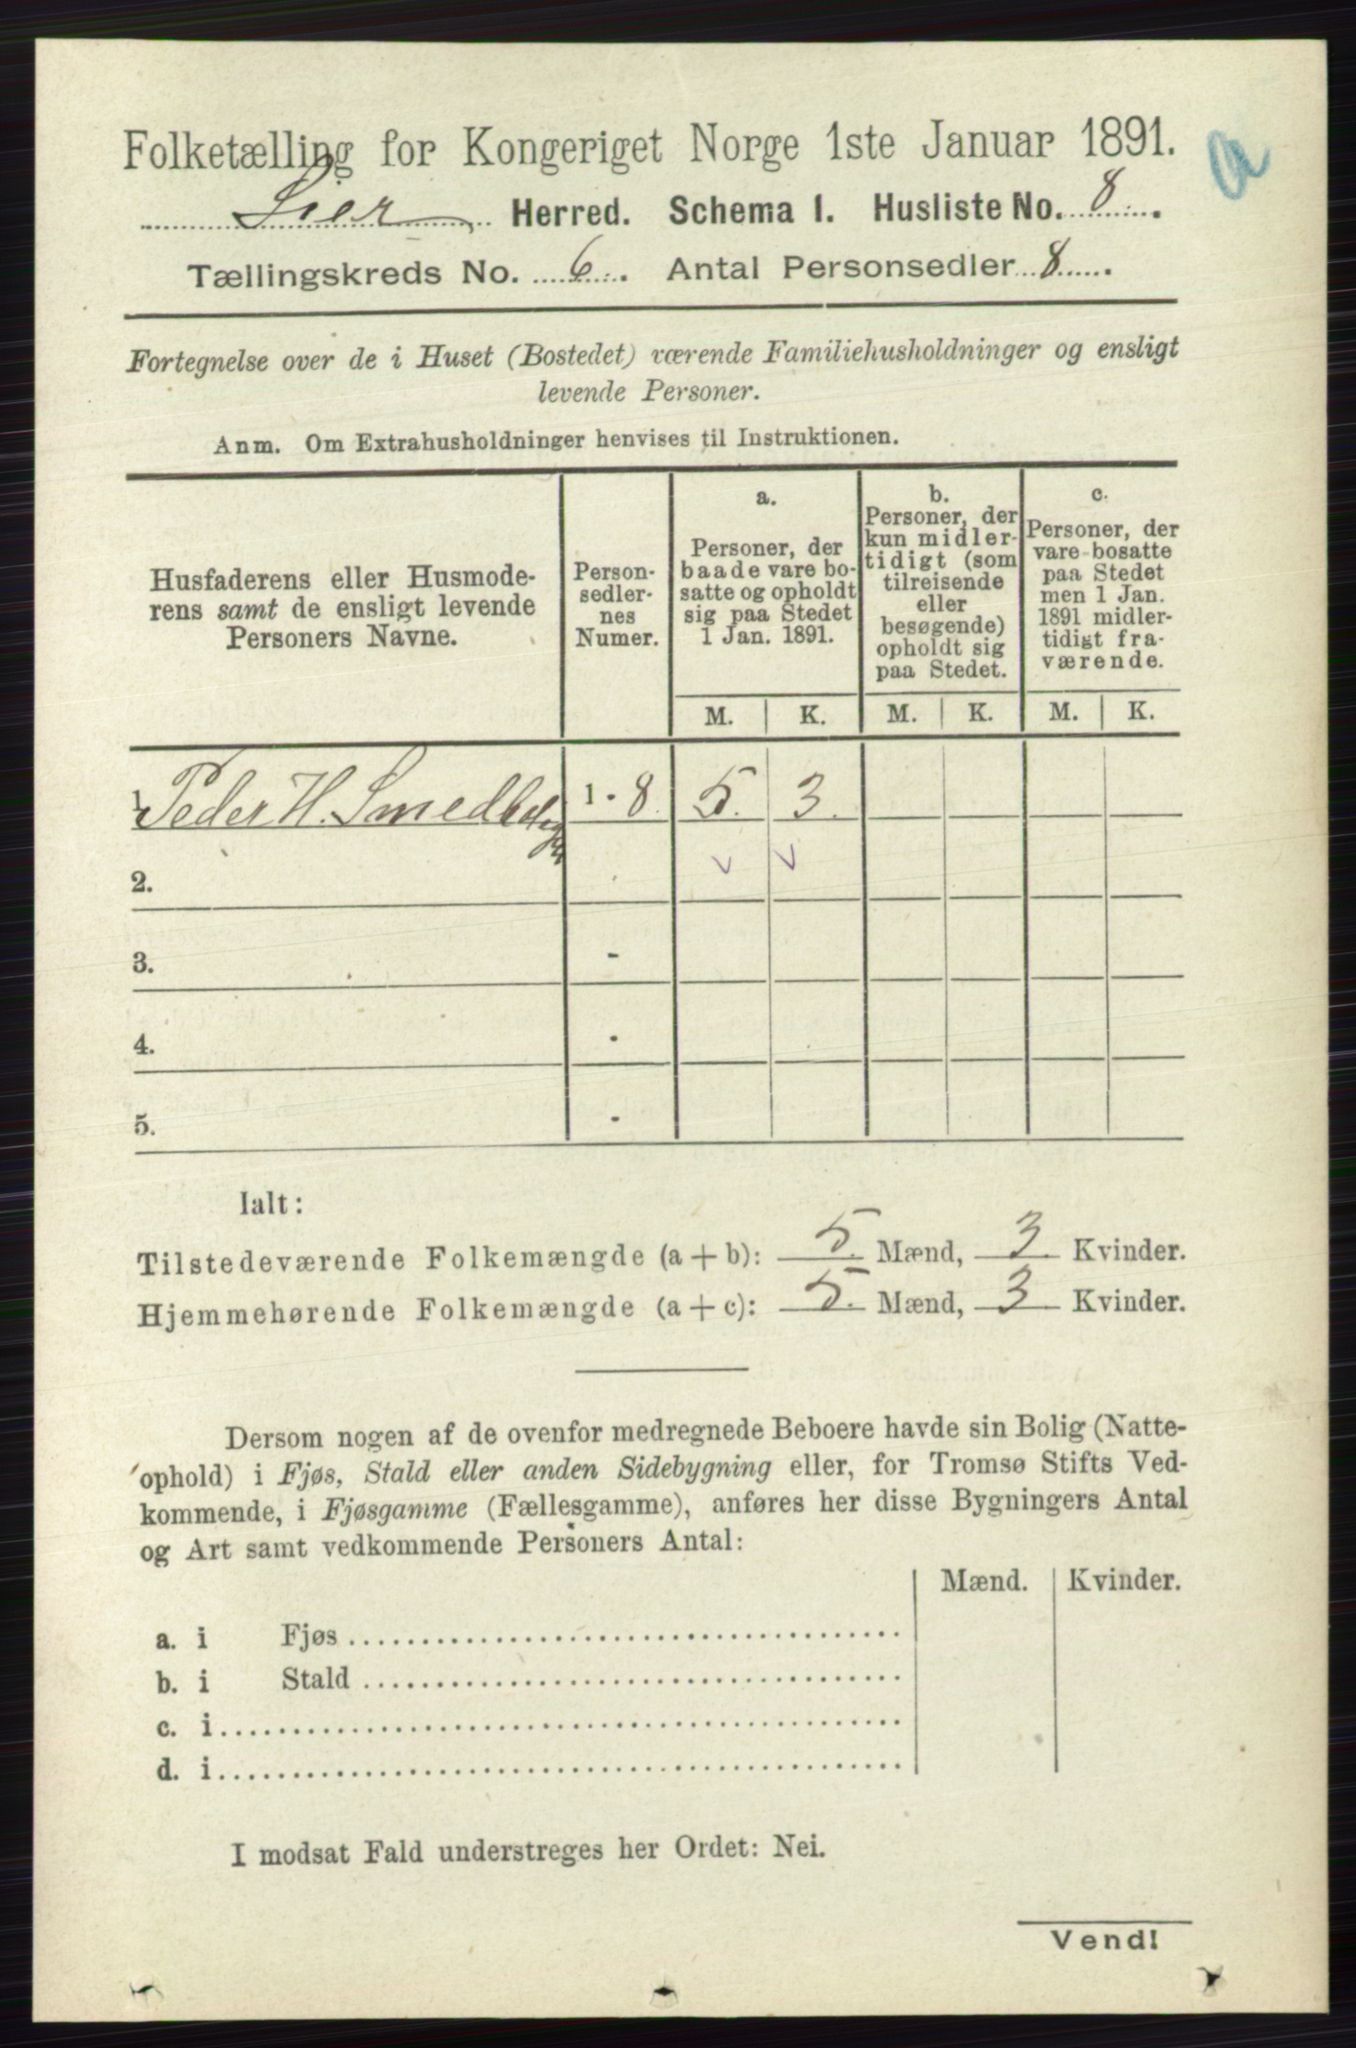 Folketælling for Kongeriget Norge 1ste Januar 1891.
a
Lier Herred. Schema 1. Husliste No. 8.
Tællingskreds No. 6. Antal Personsedler 8.
Fortegnelse over de i Huset (Bostedet) værende Familiehusholdninger og ensligt
levende Personer.
Anm. Om Extrahusholdninger henvises til Instruktionen.
Husfaderens eller Husmode-
rens samt de ensligt levende
Personers Navne.
Person-
sedler-
nes
Numer.
a.
Personer, der
baade vare bo-
satte og opholdt
sig paa Stedet
1 Jan. 1891.
b.
Personer, der
kun midler-
tidigt (som
tilreisende
eller
besøgende)
opholdt sig
paa Stedet.
c.
Personer, der
vare bosatte
paa Stedet
men 1 Jan.
1891 midler-
tidigt fra-
værende.
M. K. M. K. M. K.
1. Peder H. 1 - 8. 5. 3.
2.
3. -
4. -
5. -
Ialt:
Tilstedeværende Folkemængde (a + b): 5. Mænd, 3. Kvinder.
Hjemmehørende Folkemængde (a + c): 5. Mænd, 3 Kvinder.
Dersom nogen af de ovenfor medregnede Beboere havde sin Bolig (Natte-
ophold) i Fjøs, Stald eller anden Sidebygning eller, for Tromsø Stifts Ved-
kommende, i Fjøsgamme (Fællesgamme), anføres her disse Bygningers Antal
og Art samt vedkommende Personers Antal:
Mænd. Kvinder.
a. i Fjøs
b. i Stald
c. i
d. i
I modsat Fald understreges her Ordet: Nei.
Vend!